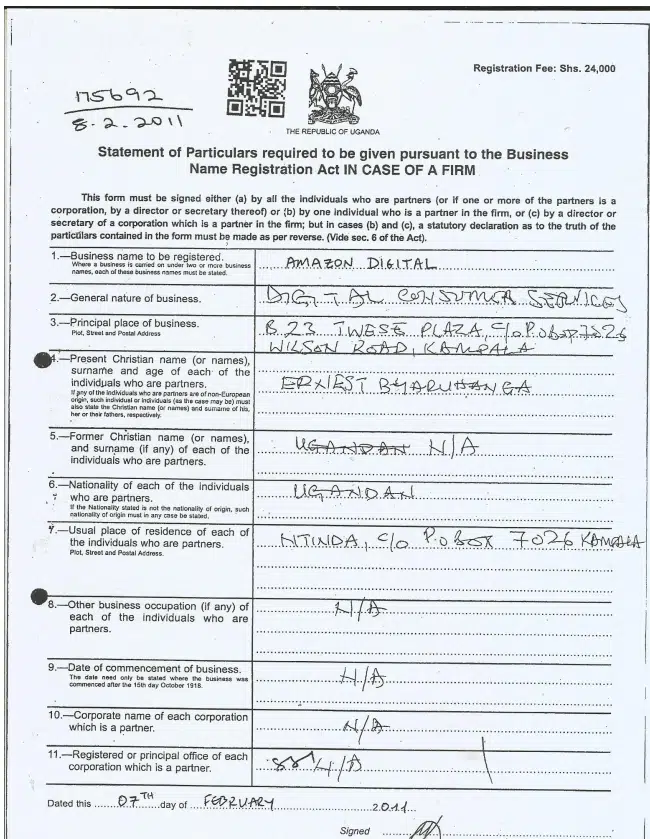 Registration Fee: Shs. 24,000
175692
8.2.2011
THE REPUBLIC OF UGANDA
Statement of Particulars required to be given pursuant to the Business
Name Registration Act IN CASE OF A FIRM
This form must be signed either (a) by all the individuals who are partners (or if one or more of the partners is a
corporation, by a director or secretary thereof) or (b) by one individual who is a partner in the firm, or (c) by a director or
secretary of a corporation which is a partner in the firm; but in cases (b) and (c), a statutory declaration as to the truth of the
particulars contained in the form must be made as per reverse. (Vide sec. 6 of the Act).
1.—Business name to be registered.
Where a business is carried on under two or more business
names, each of these business names must be stated.
AMAZON DIGITAL
2.—General nature of business.
DIGITAL CONSUMER SERVICES
3.—Principal place of business.
Plot, Street and Postal Address
B 23 TWESE PLAZA, C/O P.O Box 7026
WILSON ROAD, KAMPALA
4.—Present Christian name (or names),
surname and age of each of the
individuals who are partners.
If any of the individuals who are partners are of non-European
origin, such individual or individuals (as the case may be) must
also state the Christian name (or names) and surname of his,
her or their fathers, respectively.
ERNEST BYARUHANGA
5.—Former Christian name (or names),
and surname (if any) of each of the
individuals who are partners.
UGANDAN N/A
6.—Nationality of each of the individuals
who are partners.
If the Nationality stated is not the nationality of origin, such
nationality of origin must in any case be stated.
UGANDAN
7.—Usual place of residence of each of
the individuals who are partners.
Plot, Street and Postal Address.
NTINDA, C/O P.O BOX 7026 KAMPALA
8.—Other business occupation (if any) of
each of the individuals who are
partners.
N/A
9.—Date of commencement of business.
The date need only be stated where the business was
commenced after the 15th day October 1918.
N/A
10.—Corporate name of each corporation
which is a partner.
N/A
11.—Registered or principal office of each
corporation which is a partner.
N/A
Dated this 07TH day of FEBRUARY 2011
Signed